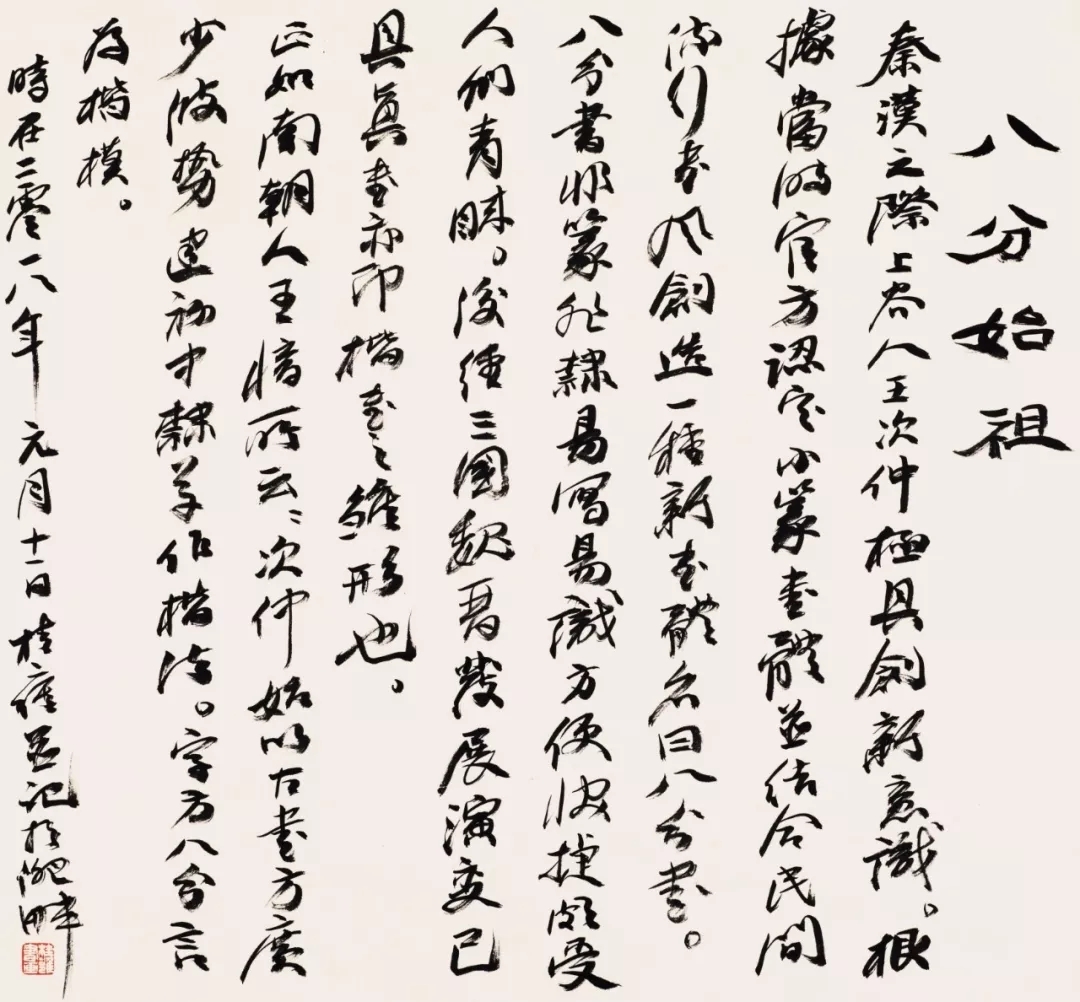 八分始祖
秦漢之際上谷人王次仲極具創新意識。根
據當時官方認定小篆書體並結合民間
流行書風創造一種新書體名曰八分書。
八分書非篆非隸易寫易識方便快捷頗受
人們青睞。後經三國魏晉發展演變已
具真書亦即楷書之雛形也。
正如南朝人王愔所云：次仲始以古書方廣
少波勢建初中隸草作楷法。字方八分言
為楷模。
時在二零一八年元月十一日桂 並記於 畔